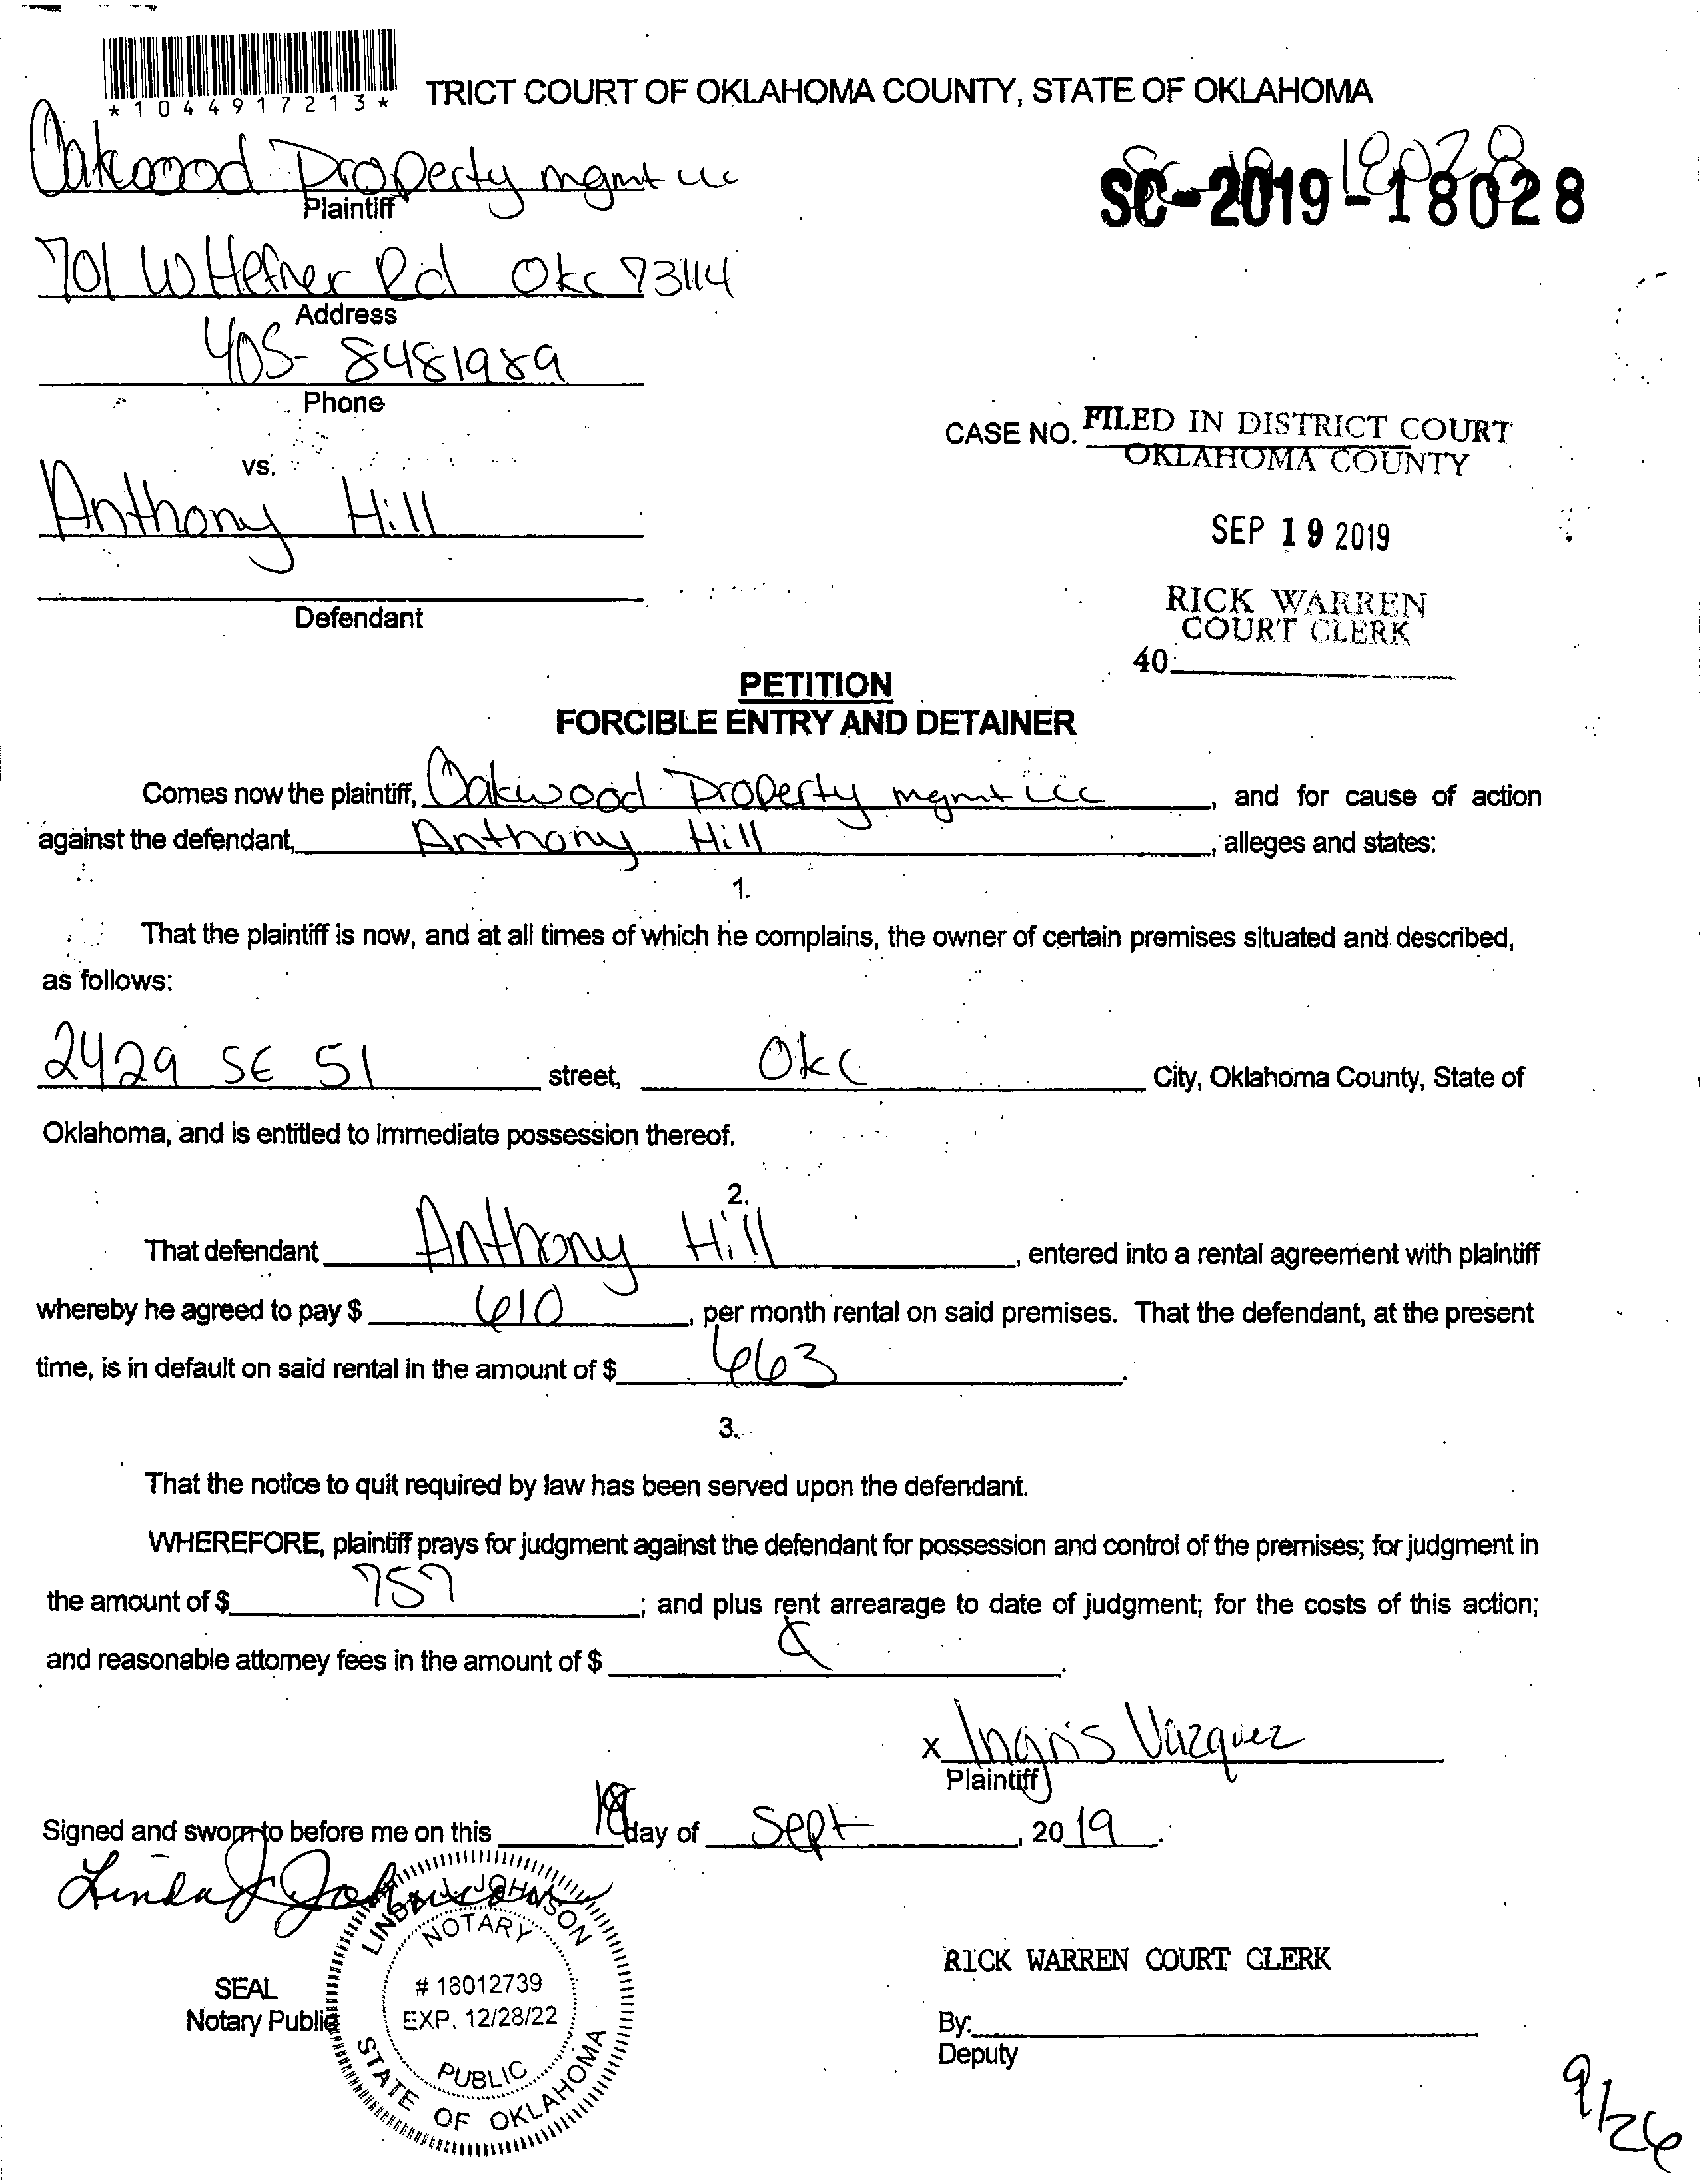 *1044917213*
TRICT COURT OF OKLAHOMA COUNTY, STATE OF OKLAHOMA
Oakwood Property mgmt llc
Plaintiff
SC-2019-18028
701 W Hefner Rd Okc 73114
Address
405-8481989
Phone
CASE NO. FILED IN DISTRICT COURT
OKLAHOMA COUNTY
vs.
Anthony Hill
SEP 19 2019
Defendant
RICK WARREN
COURT CLERK
40
PETITION
FORCIBLE ENTRY AND DETAINER
Comes now the plaintiff, Oakwood Property mgmt llc, and for cause of action
against the defendant, Anthony Hill, alleges and states:
1.
That the plaintiff is now, and at all times of which he complains, the owner of certain premises situated and described,
as follows:
2429 SE 51 street, Okc City, Oklahoma County, State of
Oklahoma, and is entitled to immediate possession thereof.
2.
That defendant Anthony Hill, entered into a rental agreement with plaintiff
whereby he agreed to pay $ 610, per month rental on said premises. That the defendant, at the present
time, is in default on said rental in the amount of $ 663.
3.
That the notice to quit required by law has been served upon the defendant.
WHEREFORE, plaintiff prays for judgment against the defendant for possession and control of the premises; for judgment in
the amount of $ 757; and plus rent arrearage to date of judgment; for the costs of this action;
and reasonable attorney fees in the amount of $
x Ingris Vazquez
Plaintiff
Signed and sworn to before me on this 18 day of Sept, 2019.
Linda J Johnson
LINDA J. JOHNSON
NOTARY
# 18012739
EXP. 12/28/22
PUBLIC
STATE OF OKLAHOMA
SEAL
Notary Public
RICK WARREN COURT CLERK
By:
Deputy
9/26